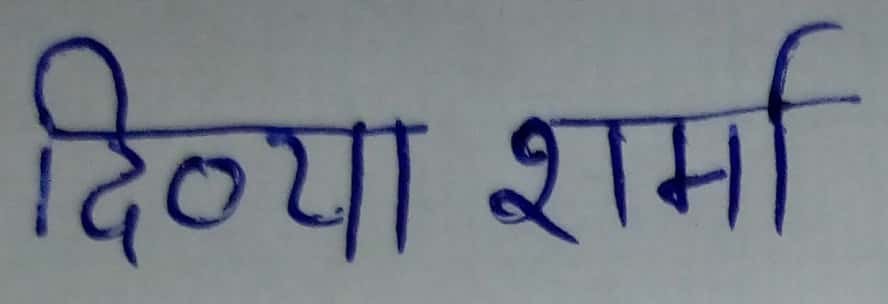 दिव्या शर्मा